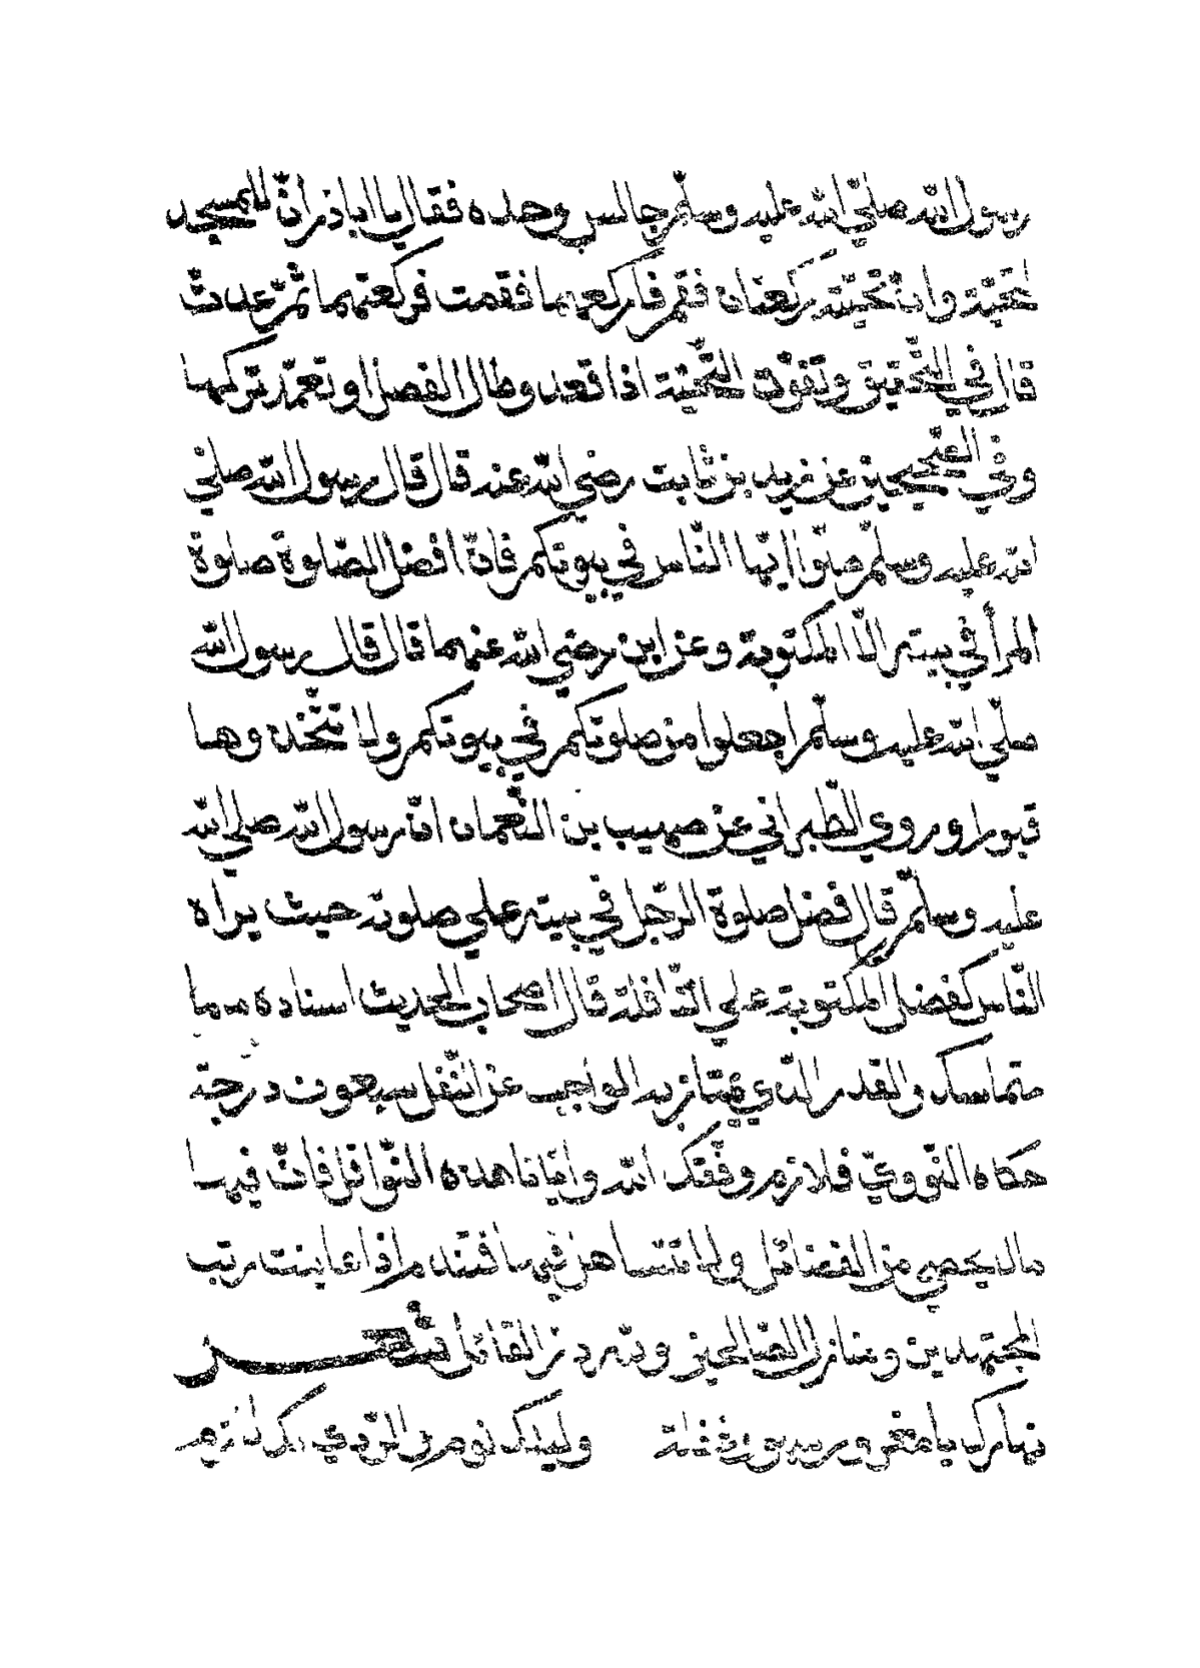 رسول الله صلي الله عليه وسلم جالس وحده فقال يا اباذر ان للمسجد
تحية وان تحيته ركعتان فقم فاركعهما فقمت فركعتهما ثم عدت
قال في التحقيق وتفوت التحية اذا قعد وطال الفصل او تعمد تركها
وفي الصحيحين عن زيد بن ثابت رضي الله عنه قال قال رسول الله صلي
الله عليه وسلم صلوا ايها الناس في بيوتكم فان افضل الصلوة صلوة
المرأ في بيته الا المكتوبة وعن ابن رضي الله عنهما قال قال رسول الله
صلي الله عليه وسلم اجعلوا من صلوتكم في بيوتكم ولا تتخذوها
قبورا وروي الطبراني عن صهيب بن النعمان ان رسول الله صلي الله
عليه وسلم قال فضل صلوة الرجل في بيته علي صلوته حيث يراه
الناس كفضل المكتوبة علي النافلة قال اصحاب الحديث اسناده
متماسك والقدر الذي يمتاز به الواجب عن النفل سبعون درجة
حكاه النووي فلازم وفقك الله وايانا هذه النوافل فان فيها
مالا يحصي من الفضائل ولا تتساهل فيها فتندم اذا عاينت رتب
المجتهدين ومنازل الصالحين ولله در القائل شعر
نهارك يا مغرور سهو وغفلة وليلك نوم والردي لك لازم